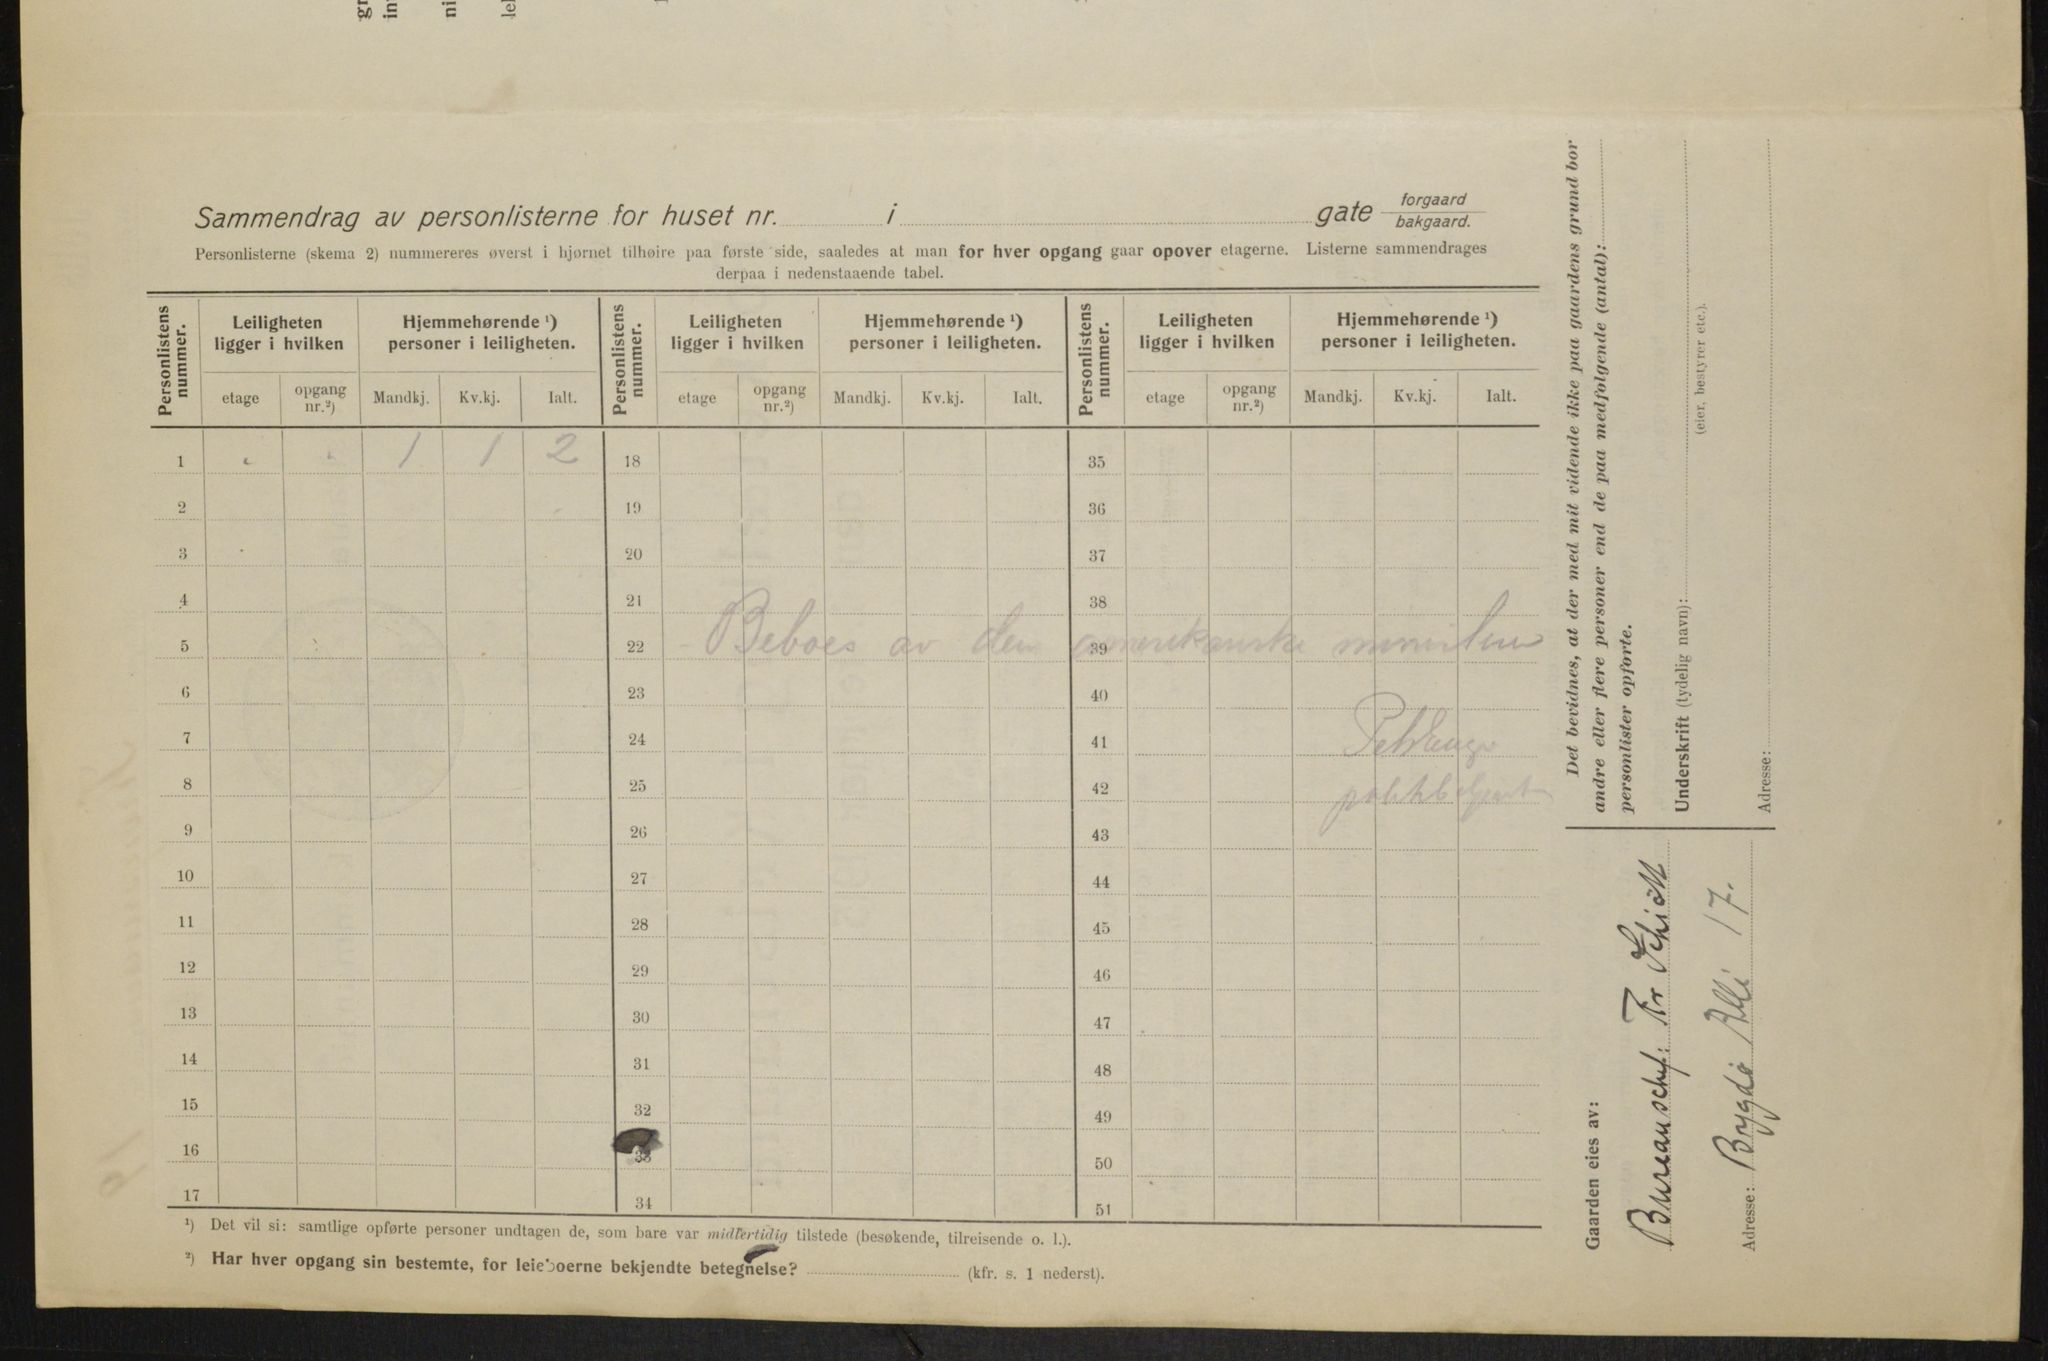 Sammendrag av personlisterne for huset nr. i gate forgaard bakgaard.
Personlisterne (skema 2) nummereres øverst i hjørnet tilhøire paa første side, saaledes at man for hver opgang gaar opover etagerne. Listerne sammendrages
derpaa i nedenstaaende tabel.
Personlistens nummer. Leiligheten ligger i hvilken Hjemmehørende ¹) personer i leiligheten. Personlistens nummer. Leiligheten ligger i hvilken Hjemmehørende ¹) personer i leiligheten. Personlistens nummer. Leiligheten ligger i hvilken Hjemmehørende ¹) personer i leiligheten.
etage opgang nr.²) Mandkj. Kv.kj. Ialt. etage opgang nr.²) Mandkj. Kv.kj. Ialt. etage opgang nr.²) Mandkj. Kv.kj. Ialt.
1 „ „ 1 1 2 18 35
2 19 36
3 20 37
4 21 38
5 22 Beboes av den amerikanske minister 39
6 23 40
7 24 41
8 25 42
9 26 43
10 27 44
11 28 45
12 29 46
13 30 47
14 31 48
15 32 49
16 33 50
17 34 51
¹) Det vil si: samtlige opførte personer undtagen de, som bare var midlertidig tilstede (besøkende, tilreisende o. l.).
²) Har hver opgang sin bestemte, for leieboerne bekjendte betegnelse? (kfr. s. 1 nederst).
Det bevidnes, at der med mit vidende ikke paa gaardens grund bor
andre eller flere personer end de paa medfølgende (antal):
personlister opførte.
Underskrift (tydelig navn):
(eier, bestyrer etc.).
Adresse:
Gaarden eies av:
Bureauschef: Fr Schiött
Adresse: Bygdö Allé 17.